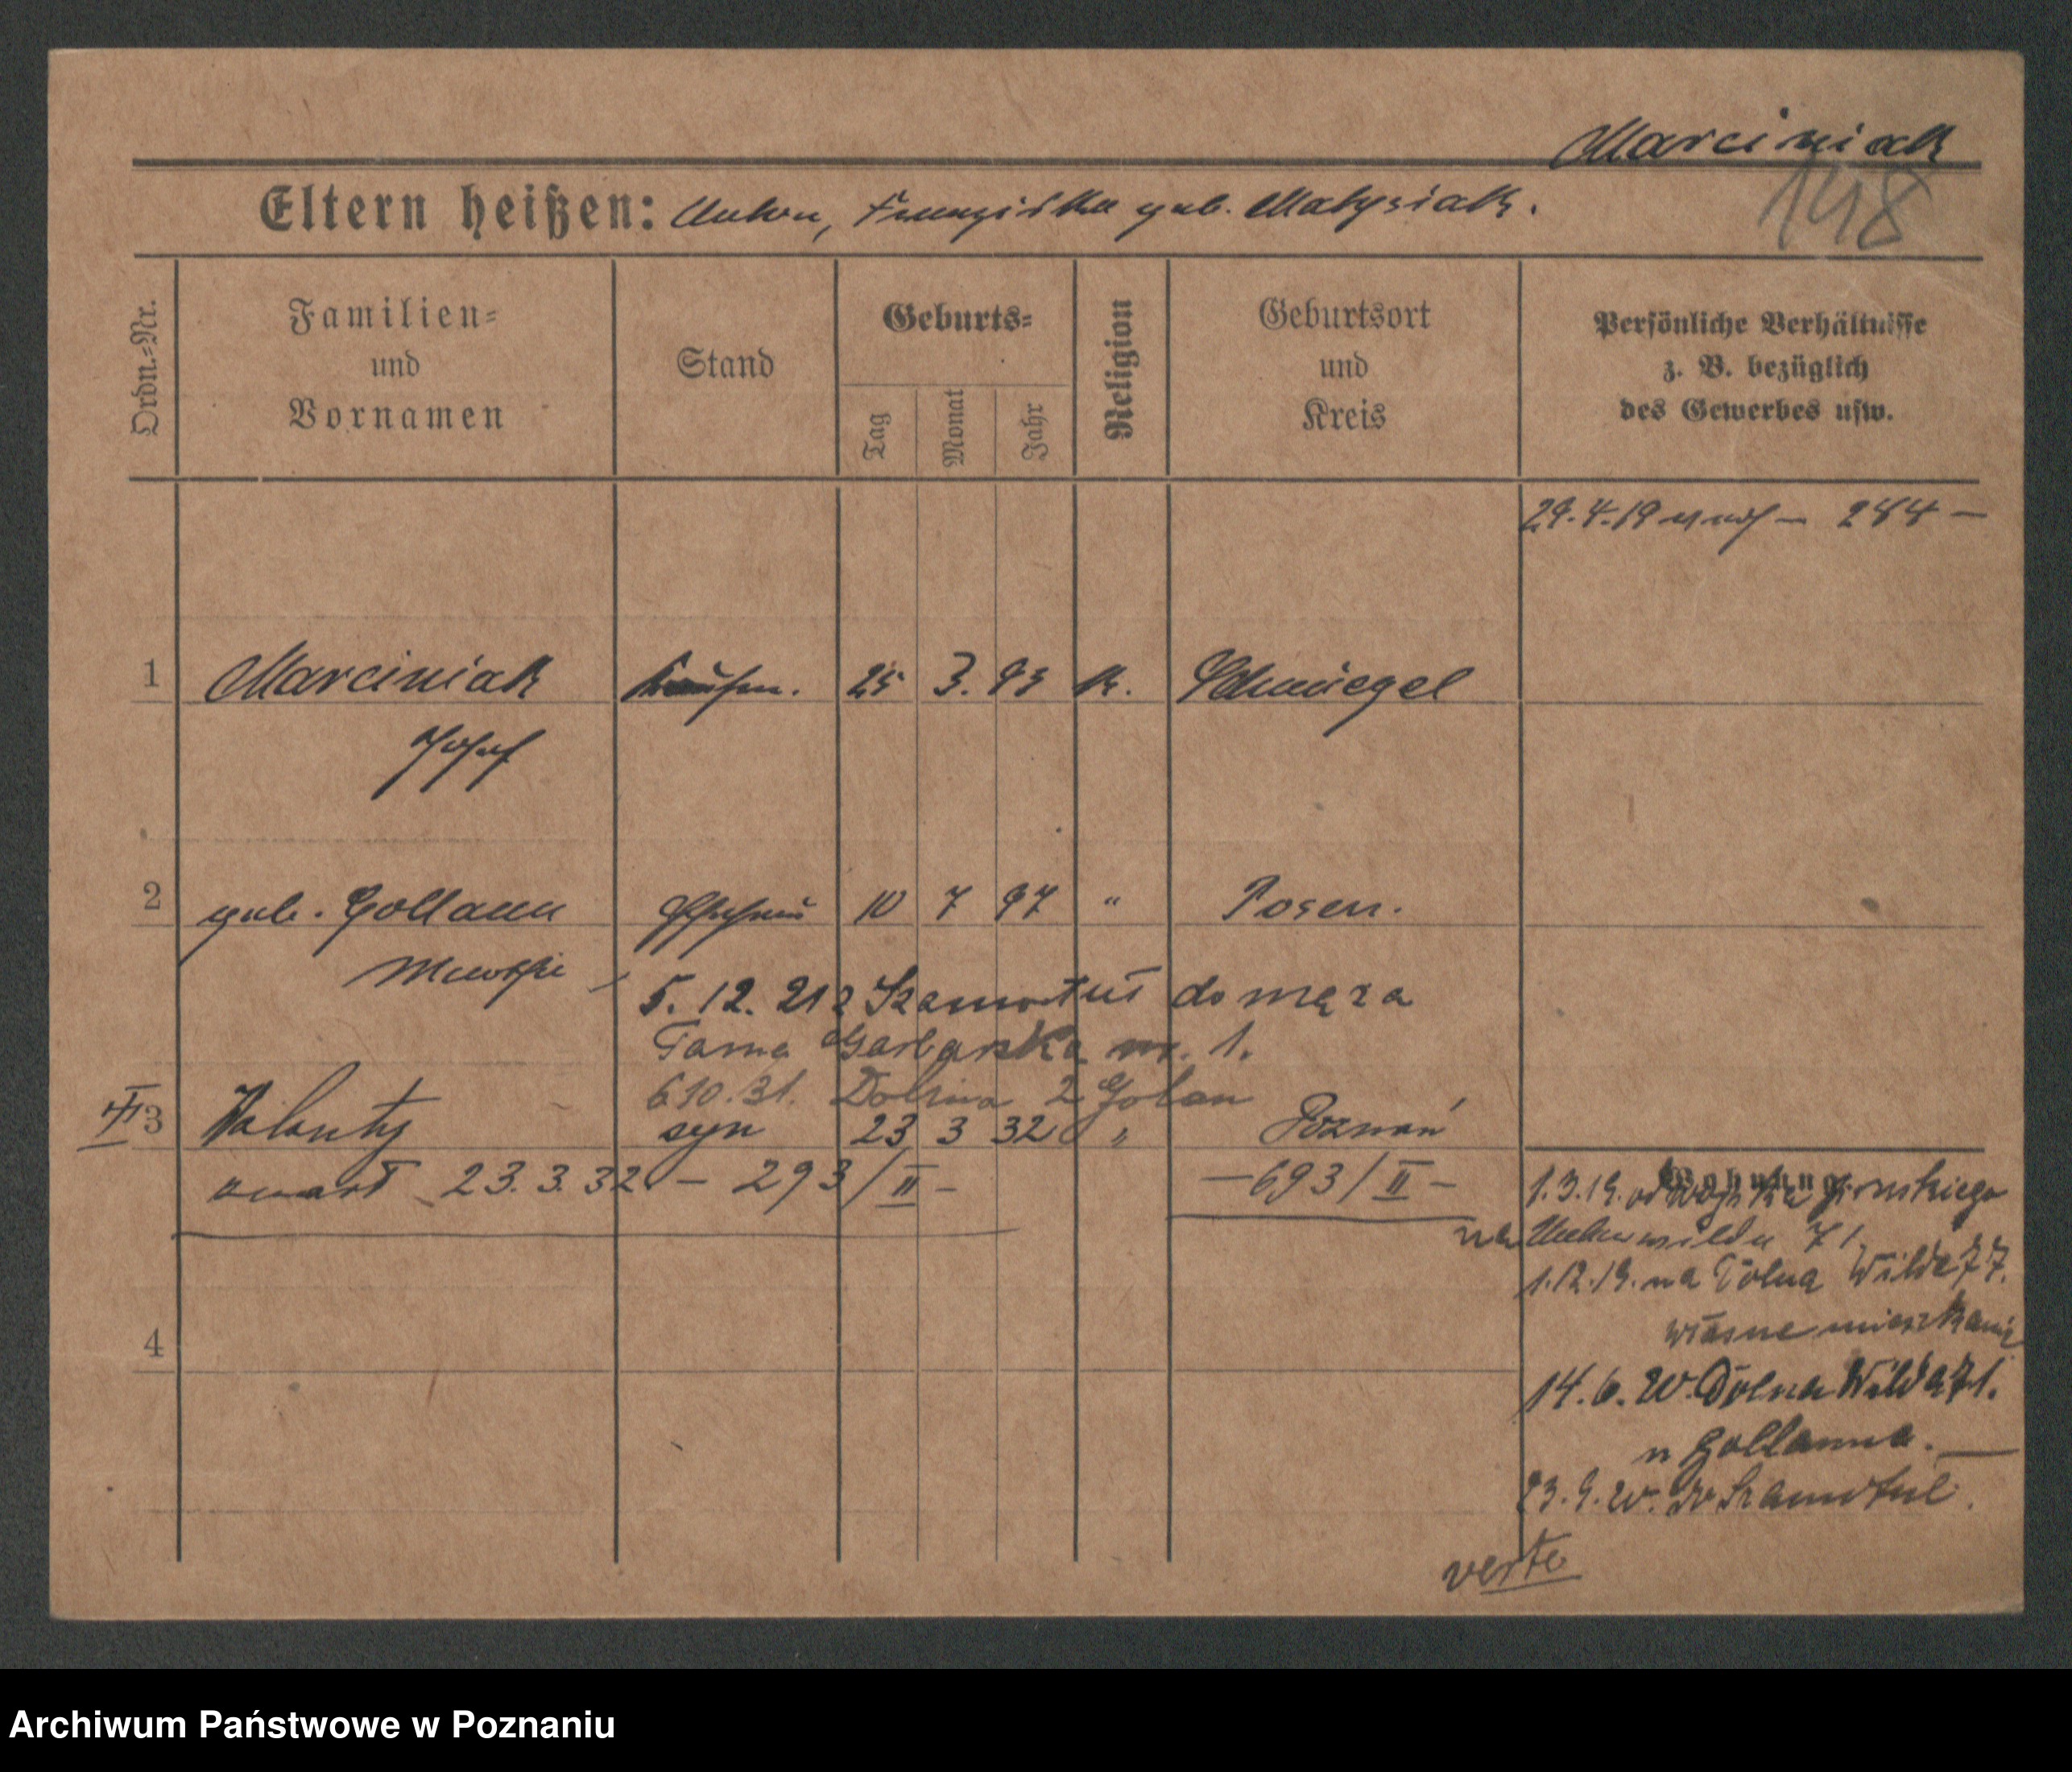 Marciniak
148
Eltern heißen: Anton, Franziska geb. Matysiak.
Ordn.-Nr.
Familien-
und
Vornamen
Stand
Geburts-
Tag
Monat
Jahr
Religion
Geburtsort
und
Kreis
Persönliche Verhältnisse
z. B. bezüglich
des Gewerbes usw.
29.4.19 – 244 –
1 Marciniak Kaufm. 25 3. 93 k. Schmiegel
Josef
2 geb. Gollann Ehefrau 10 7 97 " Posen.
5. 12. 21 z Szamotuł do męża
Tama Garbarska nr. 1.
6.10.31. Dolina 2 Golan
VI 3 Walenty syn 23 3 32 " Poznań
zmarł 23.3.32 – 293/II – – 693/II –
Wohnung
1.3.19. od
na Unterwilda 71
1.12.19. na Dolna Wilda 77.
własne mieszkanie
4
14.6.20. Dolna Wilda 71.
u Gollanna. —
23.9.20. do Szamotuł.
verte
Archiwum Państwowe w Poznaniu